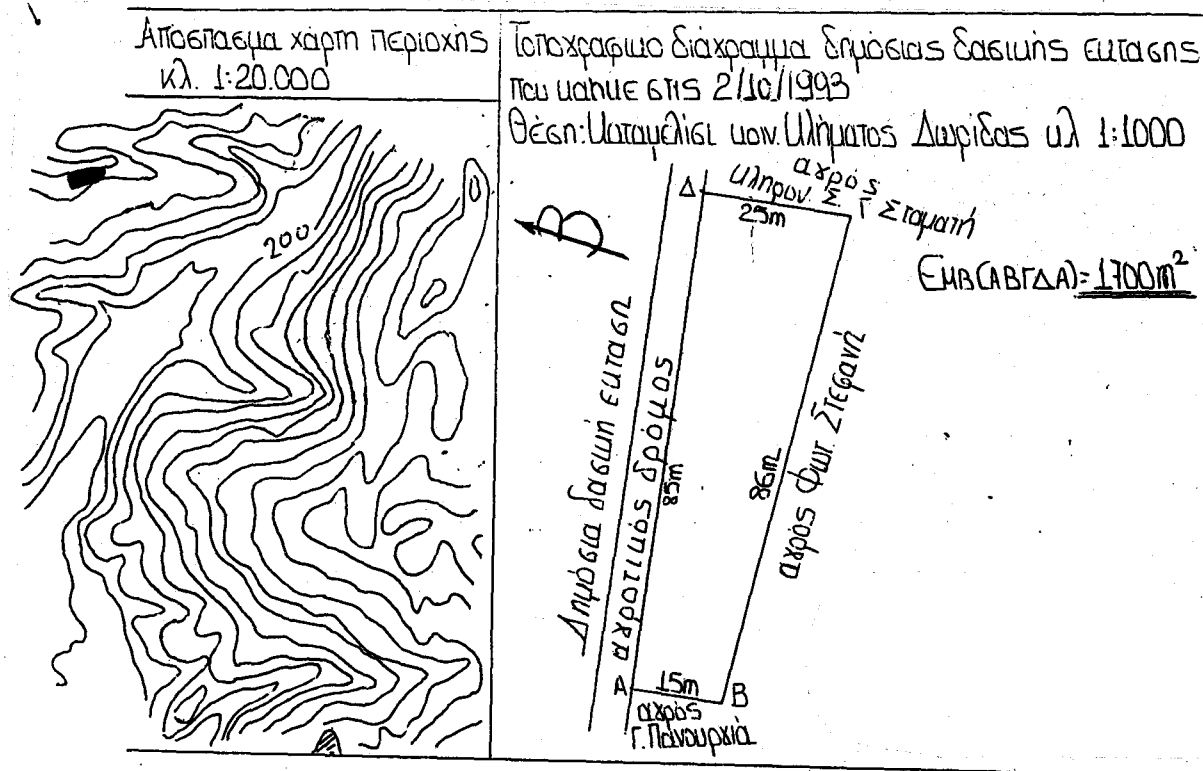 Απόσπασμα χάρτη περιοχής
κλ. 1:20.000
Τοπογραφικό διάγραμμα δημόσιας δασικής έκτασης
που κάηκε στις 2/10/1993
Θέση: Καταμελίσι κοιν. Κλήματος Δωρίδας κλ 1:1000
200
Β
Δ
αγρός
κληρον. Σ. Γ Σταματή
25m
Εμβ(ΑΒΓΔΑ)= 1700m²
Δημόσια δασική έκταση
αγροτικός δρόμος
85m
86m
αγρός Φωτ. Στεφανή
Α
15m
Β
αγρός
Γ. Πανουργιά